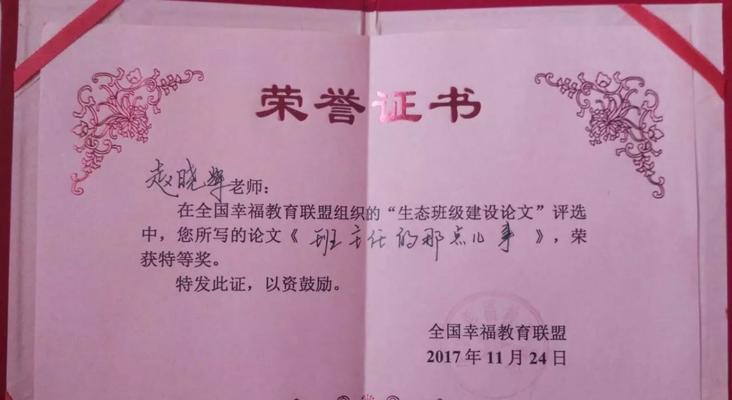 荣誉证书
赵晓辉老师：
在全国幸福教育联盟组织的“生态班级建设论文”评选
中，您所写的论文《班主任的那点儿事》，荣
获特等奖。
特发此证，以资鼓励。
全国幸福教育联盟
2017年11月24日